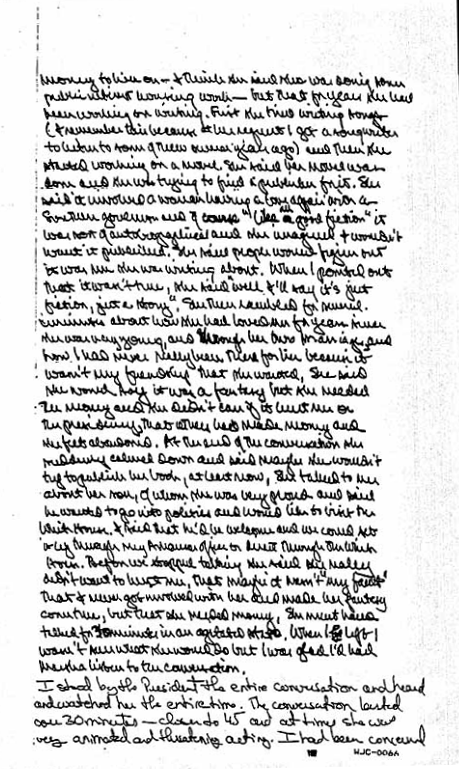 money to live on — I think she said she was doing some
public interest work — but that for years she had
been working on writing. First she tried writing songs
(I remember this because at her request I got a songwriter
to listen to some of them many years ago) and then she
started working on a novel. She said her novel was
done and she was trying to find a publisher for it. She
said it involved a woman having a long affair with a
Southern governor and of course "like all good fiction" it
was sort of autobiographical and she imagined I wouldn't
want it published. She said people would figure out
it was me she was writing about. When I pointed out
that it wasn't true, she said "well I'll say it's just
fiction, just a story". She then rambled for several
minutes about how she had loved me for years since
she was very young, and through her own marriage, and
how I had never really been there for her because it
wasn't my friendship that she wanted, She said
she would say it was a fantasy but she needed
the money and she didn't care if it hurt me or
the presidency, that others had made money and
she felt abandoned. At the end of the conversation she
suddenly calmed down and said maybe she wouldn't
try to publish her book, at least now, She talked to me
about her son, of whom she was very proud and said
he wanted to go into politics and would like to visit the
White House. I said that he'd be welcome and we could set
it up through my Arkansas office or direct through the White
House. Before we stopped talking she said she really
didn't want to hurt me, that maybe it wasn't "my fault"
that I never got involved with her and made her fantasy
come true, but that she needed money, She must have
talked for 30 minutes in an agitated state. When I left I
wasn't sure what she would do but I was glad I'd had
Marsha listen to the conversation.
I stood by the President the entire conversation and heard
and watched her the entire time. The conversation lasted
over 30 minutes — closer to 45 and at times she was
very animated and threatening acting. I had been concerned
WJC-0066